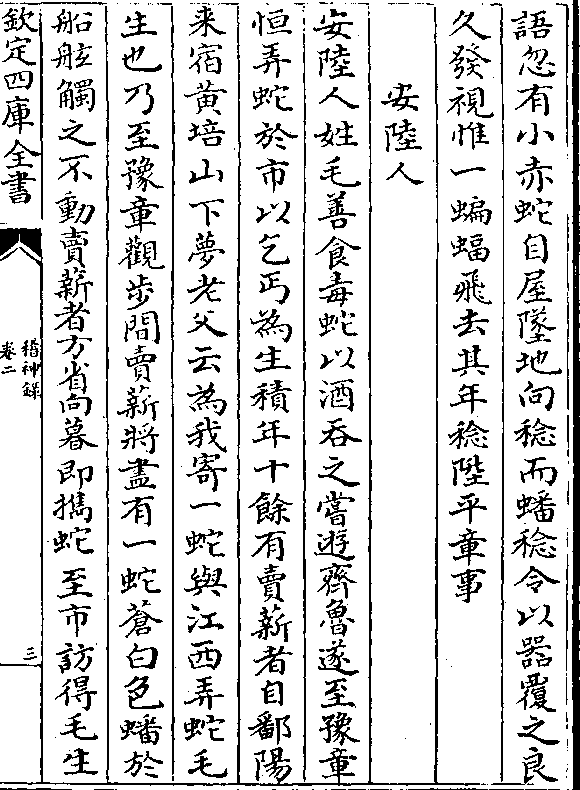 語忽有小赤蛇自屋墜地向稔而蟠稔令以器覆之良
久發視惟一蝙蝠飛去其年稔陞平章事
安陸人
安陸人姓毛善食毒蛇以酒吞之嘗遊齊魯遂至豫章
恒弄蛇於市以乞丐為生積年十餘有賣薪者自鄱陽
来宿黄培山下夢老父云為我寄一蛇與江西弄蛇毛
生也乃至豫章觀步間賣薪將盡有一蛇蒼白色蟠於
船舷觸之不動賣薪者方省向暮即攜蛇至市訪得毛生
欽定四庫全書
稽神録
卷二
三